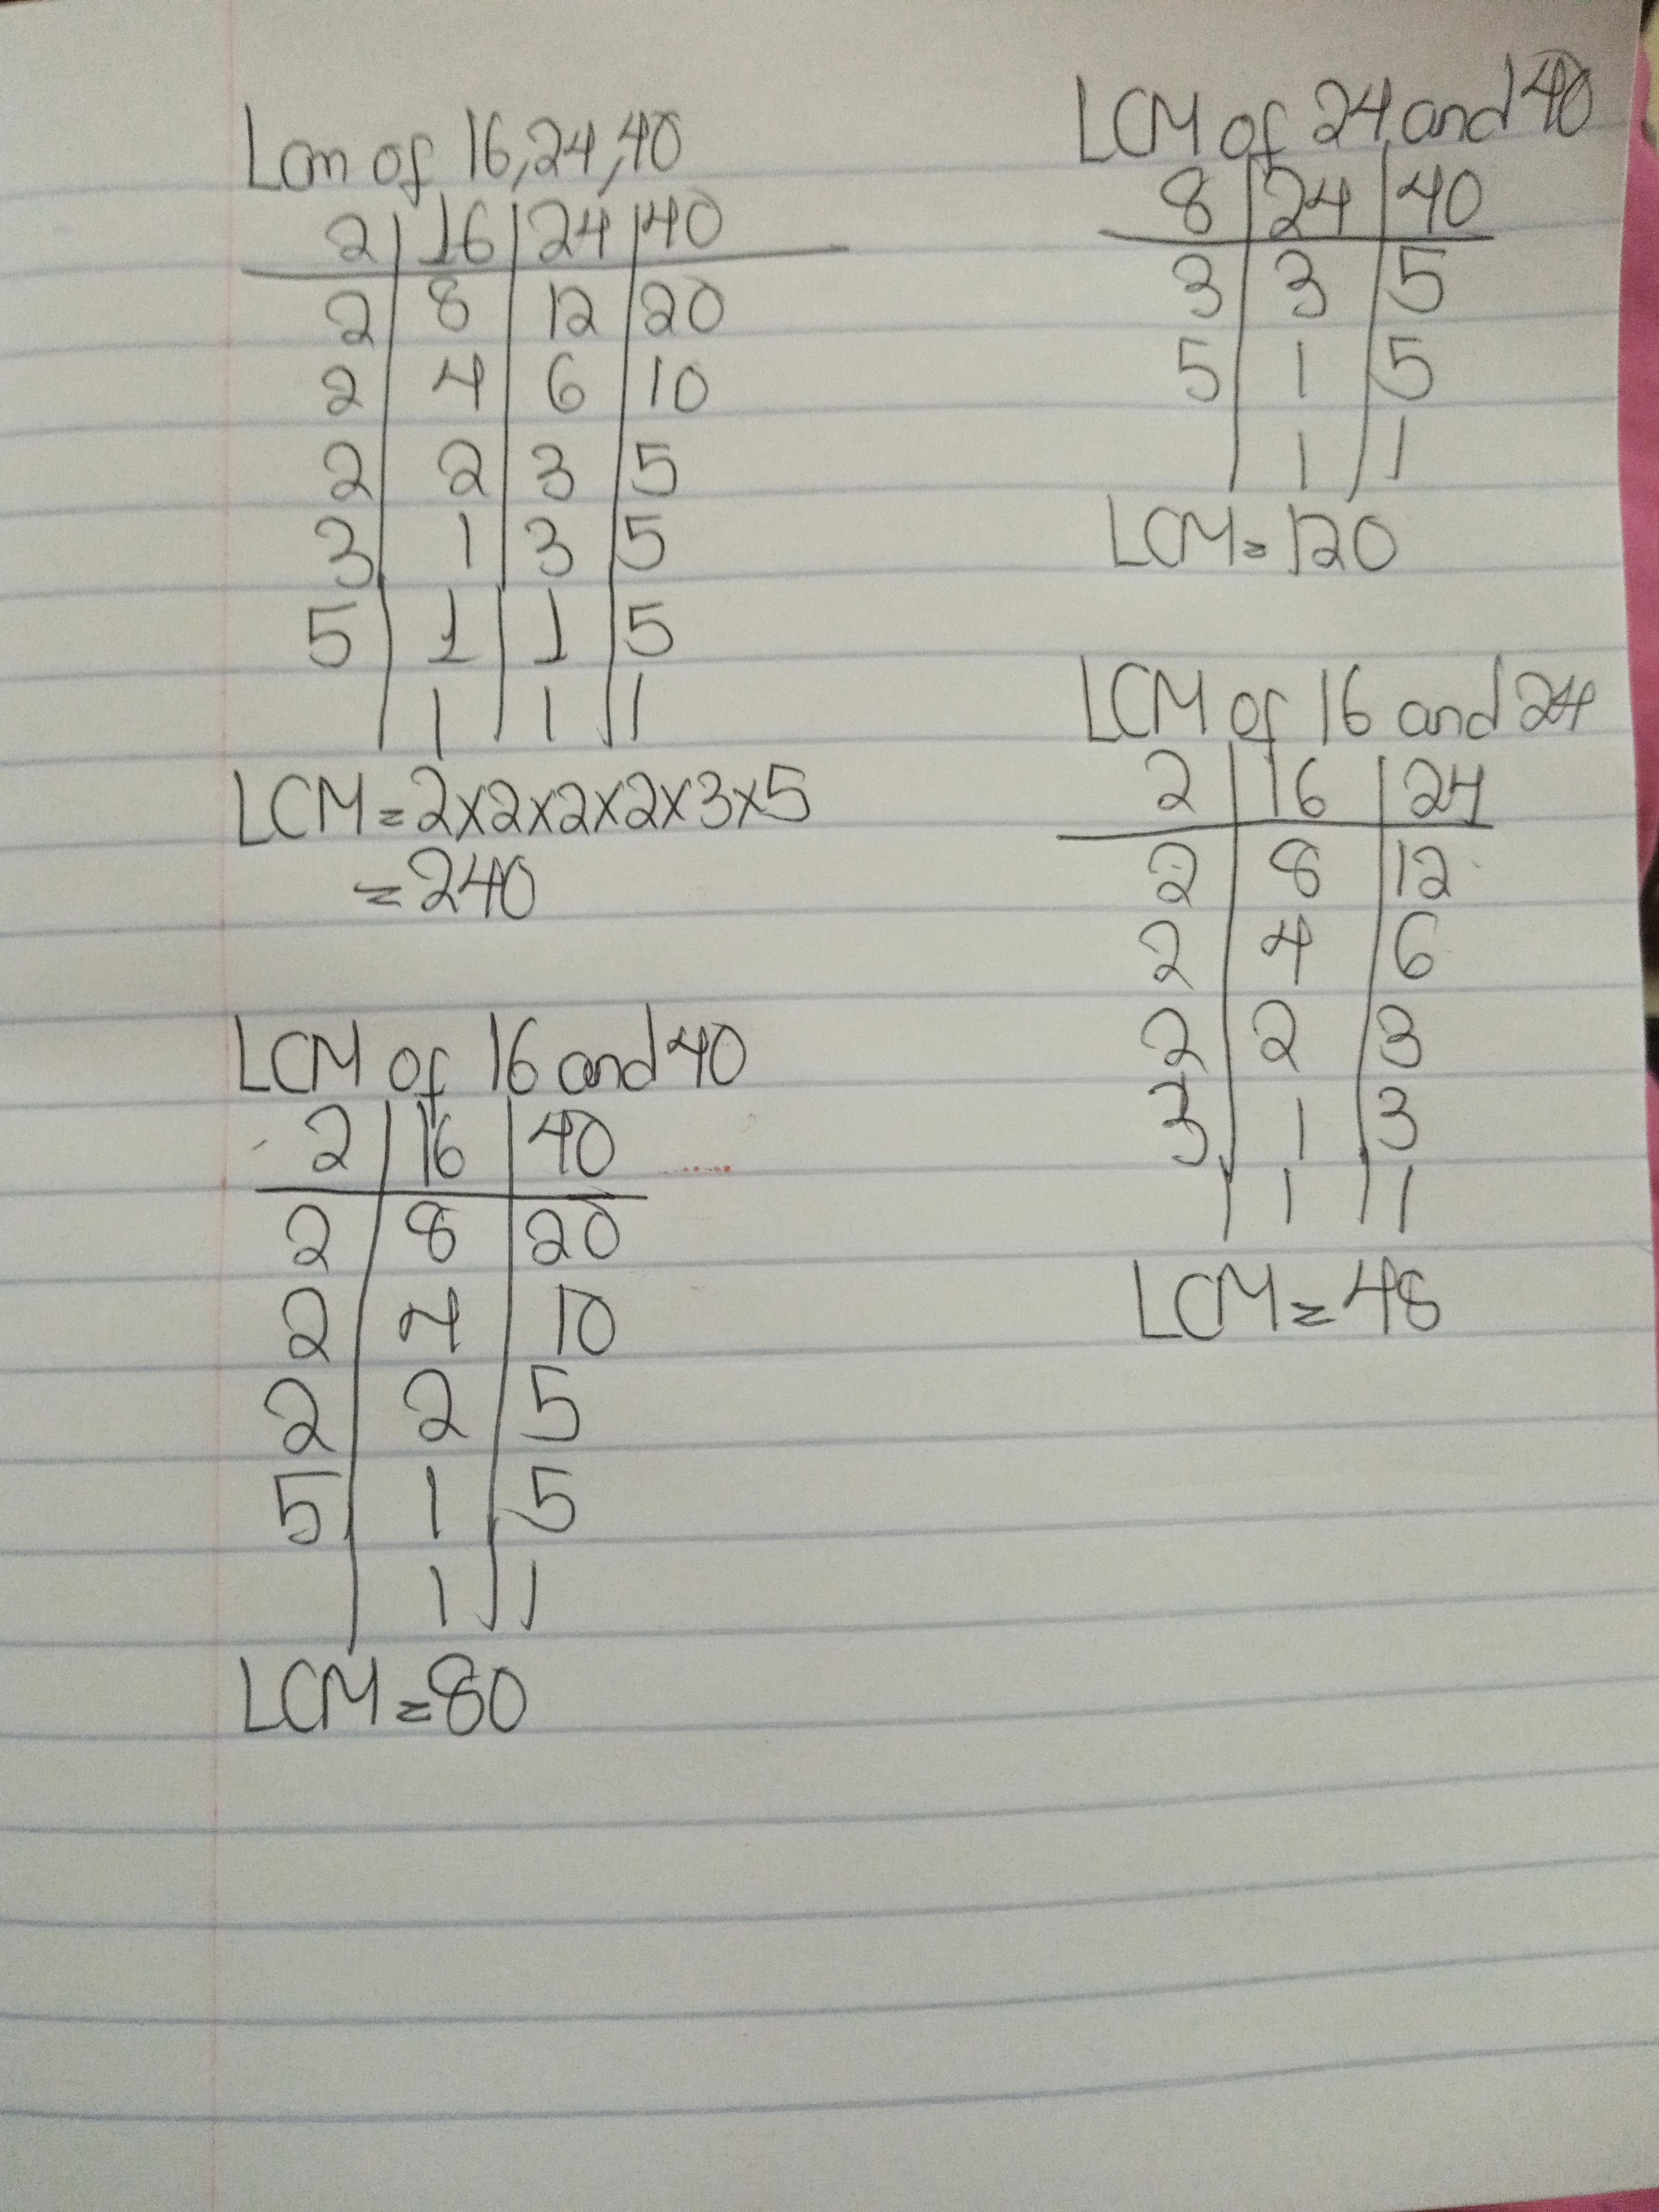 Lcm of 16,24,40
2 | 16 | 24 | 40
2 | 8 | 12 | 20
2 | 4 | 6 | 10
2 | 2 | 3 | 5
3 | 1 | 3 | 5
5 | 1 | 1 | 5
| 1 | 1 | 1
LCM = 2x2x2x2x3x5
= 240
LCM of 16 and 40
2 | 16 | 40
2 | 8 | 20
2 | 4 | 10
2 | 2 | 5
5 | 1 | 5
| 1 | 1
LCM = 80
LCM of 24 and 40
8 | 24 | 40
3 | 3 | 5
5 | 1 | 5
| 1 | 1
LCM = 120
LCM of 16 and 24
2 | 16 | 24
2 | 8 | 12
2 | 4 | 6
2 | 2 | 3
3 | 1 | 3
| 1 | 1
LCM = 48